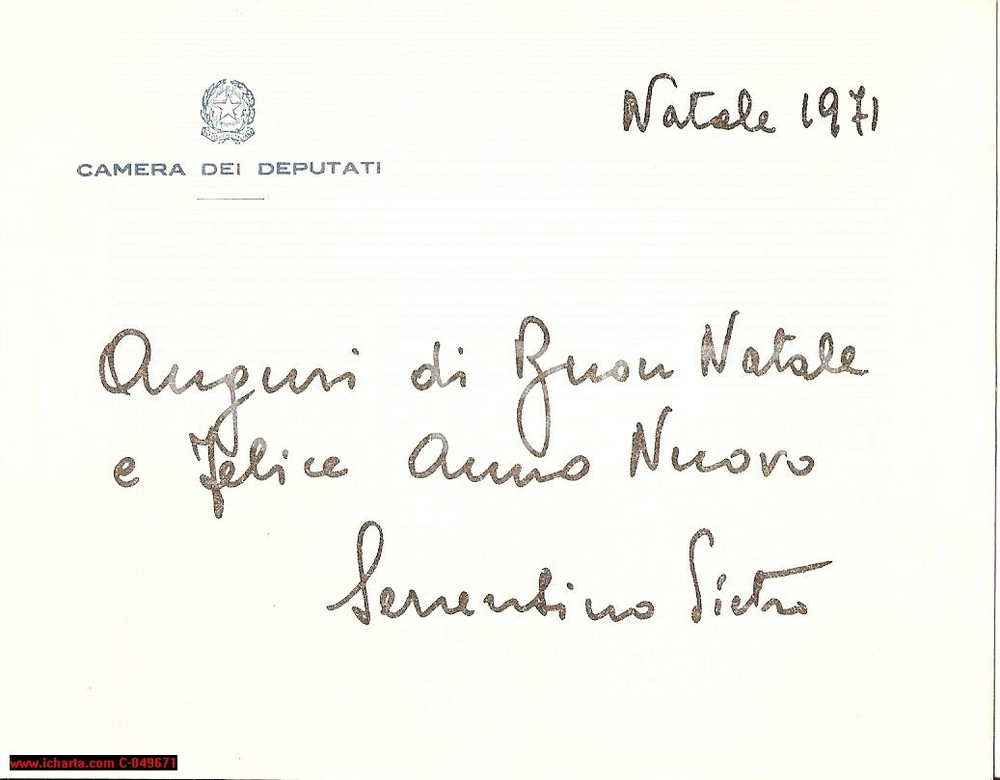 Natale 1971
CAMERA DEI DEPUTATI
Auguri di Buon Natale
e Felice Anno Nuovo
Serrentino Pietro
www.icharta.com C-049671